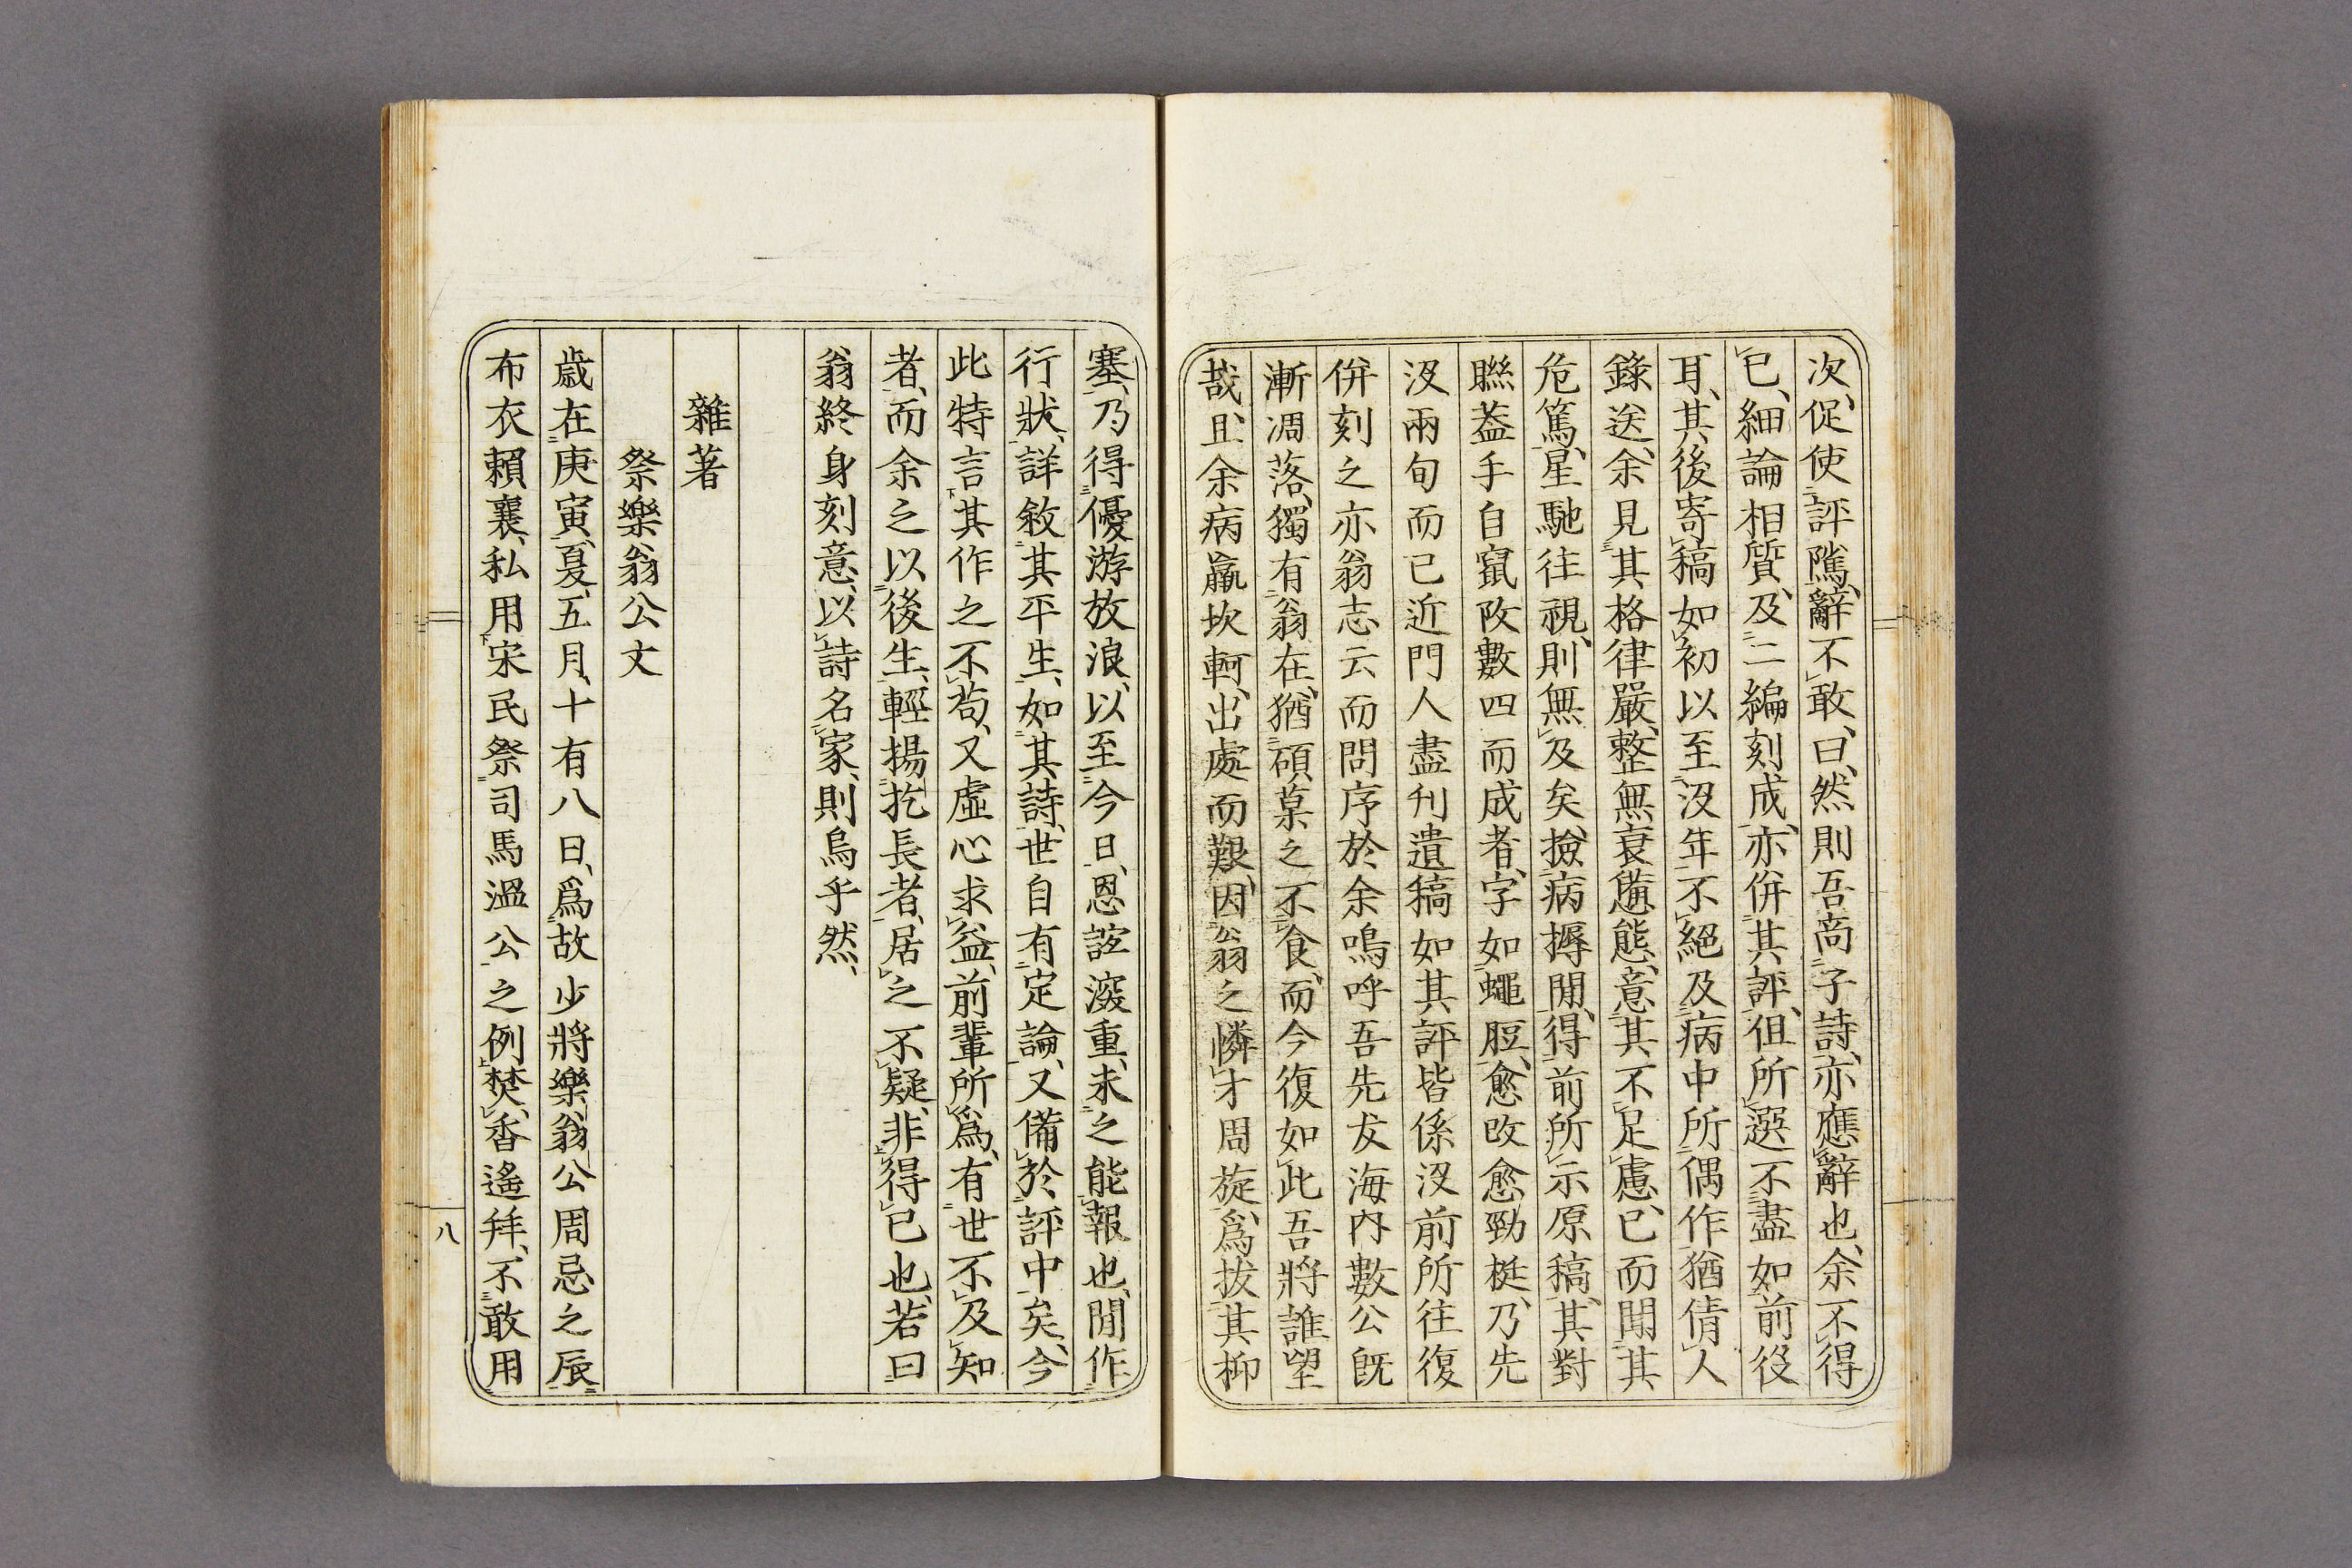 次、促使評隲、辭不敢、曰、然則吾商子詩、亦應辭也、余不得
已、細論相質、及二編刻成、亦併其評、但所選不盡如前役
耳、其後寄稿如初以至沒年不絕及病中所偶作猶倩人
錄送、余見其格律嚴整無衰憊態、意其不足慮、已而聞其
危篤、星馳往視、則無及矣、撿病搙閒、得前所示原稿、其對
聯葢手自竄改數四而成者、字如蠅脰、愈改愈勁梃、乃先
沒兩旬而已近門人盡刊遺稿如其評皆係沒前所往復
併刻之亦翁志云而問序於余嗚呼吾先友海内數公既
漸凋落、獨有翁在、猶碩菓之不食、而今復如此吾將誰望
哉、且余病羸坎軻、出處而艱、因翁之憐才周旋、爲拔其抑
塞、乃得優游放浪、以至今日、恩誼深重、未之能報也、閒作
行狀、詳敘其平生、如其詩、世自有定論、又備於評中矣、今
此特言其作之不苟、又虛心求益、前輩所爲、有世不及知
者、而余之以後生、輕揚扢長者、居之不疑、非得已也、若曰
翁終身刻意、以詩名家、則烏乎然、
雜著
祭樂翁公文
歲在庚寅、夏五月、十有八日、爲故少將樂翁公周忌之辰
布衣賴襄、私用宋民祭司馬溫公之例、焚香遙拜、不敢用
八